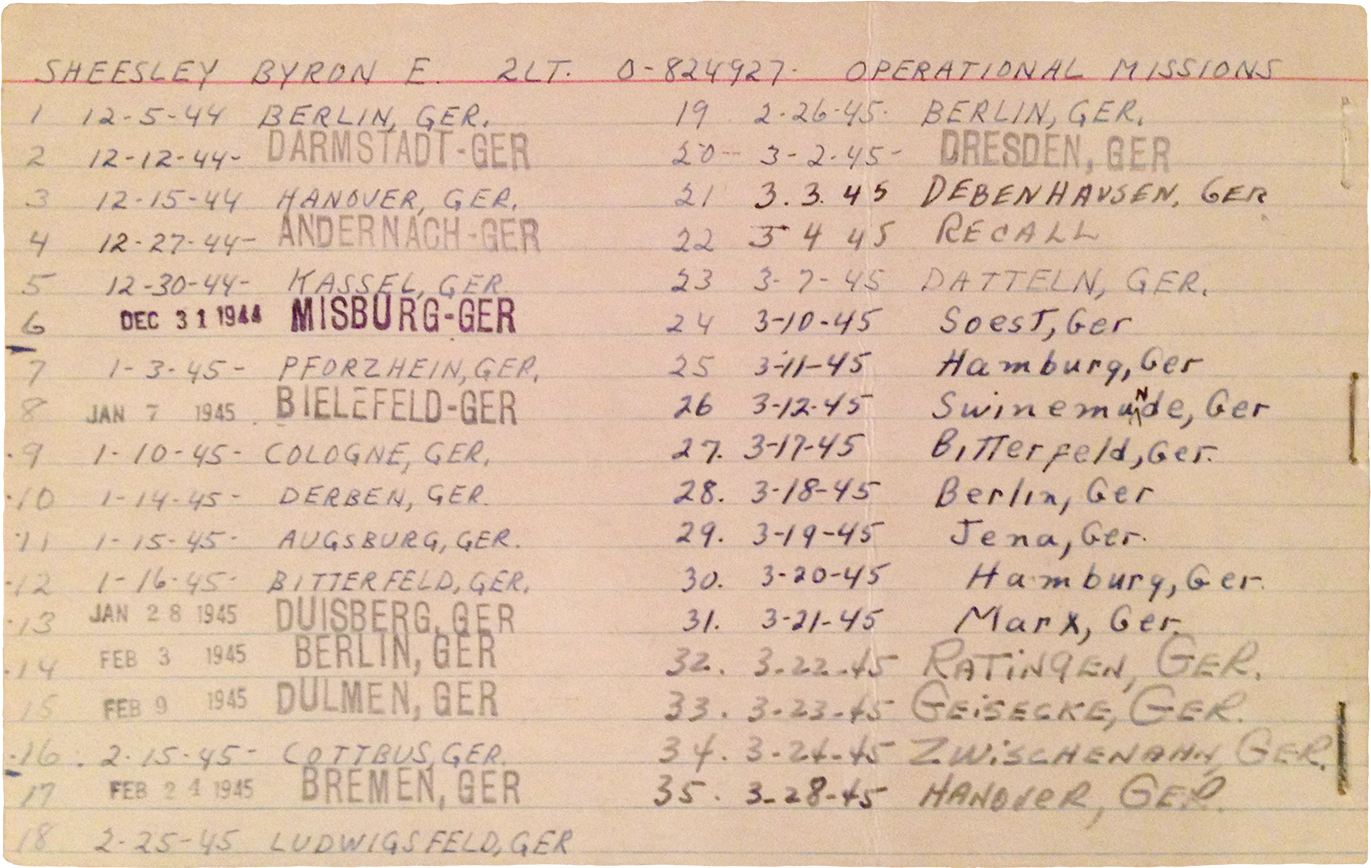 SHEESLEY BYRON E. 2LT. O-824927. OPERATIONAL MISSIONS
1 12-5-44 BERLIN, GER.
2 12-12-44- DARMSTADT-GER
3 12-15-44 HANOVER, GER.
4 12-27-44- ANDERNACH-GER
5 12-30-44- KASSEL, GER.
6 DEC 31 1944 MISBURG-GER
7 1-3-45- PFORZHEIN, GER.
8 JAN 7 1945 BIELEFELD-GER
9 1-10-45- COLOGNE, GER.
10 1-14-45- DERBEN, GER.
11 1-15-45- AUGSBURG, GER.
12 1-16-45- BITTERFELD, GER.
13 JAN 28 1945 DUISBERG, GER
14 FEB 3 1945 BERLIN, GER
15 FEB 9 1945 DULMEN, GER
16 2-15-45- COTTBUS, GER.
17 FEB 24 1945 BREMEN, GER
18 2-25-45 LUDWIGSFELD, GER
19 2-26-45- BERLIN, GER.
20-- 3-2-45- DRESDEN, GER
21 3.3.45 DEBENHAUSEN, GER
22 3 4 45 RECALL
23 3-7-45 DATTELN, GER.
24 3-10-45 Soest, Ger
25 3-11-45 Hamburg, Ger
26 3-12-45 Swinemunde, Ger
27. 3-17-45 Bitterfeld, Ger.
28. 3-18-45 Berlin, Ger
29. 3-19-45 Jena, Ger.
30. 3-20-45 Hamburg, Ger.
31. 3-21-45 Marx, Ger.
32. 3-22-45 RATINGEN, GER.
33. 3-23-45 GEISECKE, GER.
34. 3-24-45 ZWISCHENAHN, GER.
35. 3-28-45 HANOVER, GER.